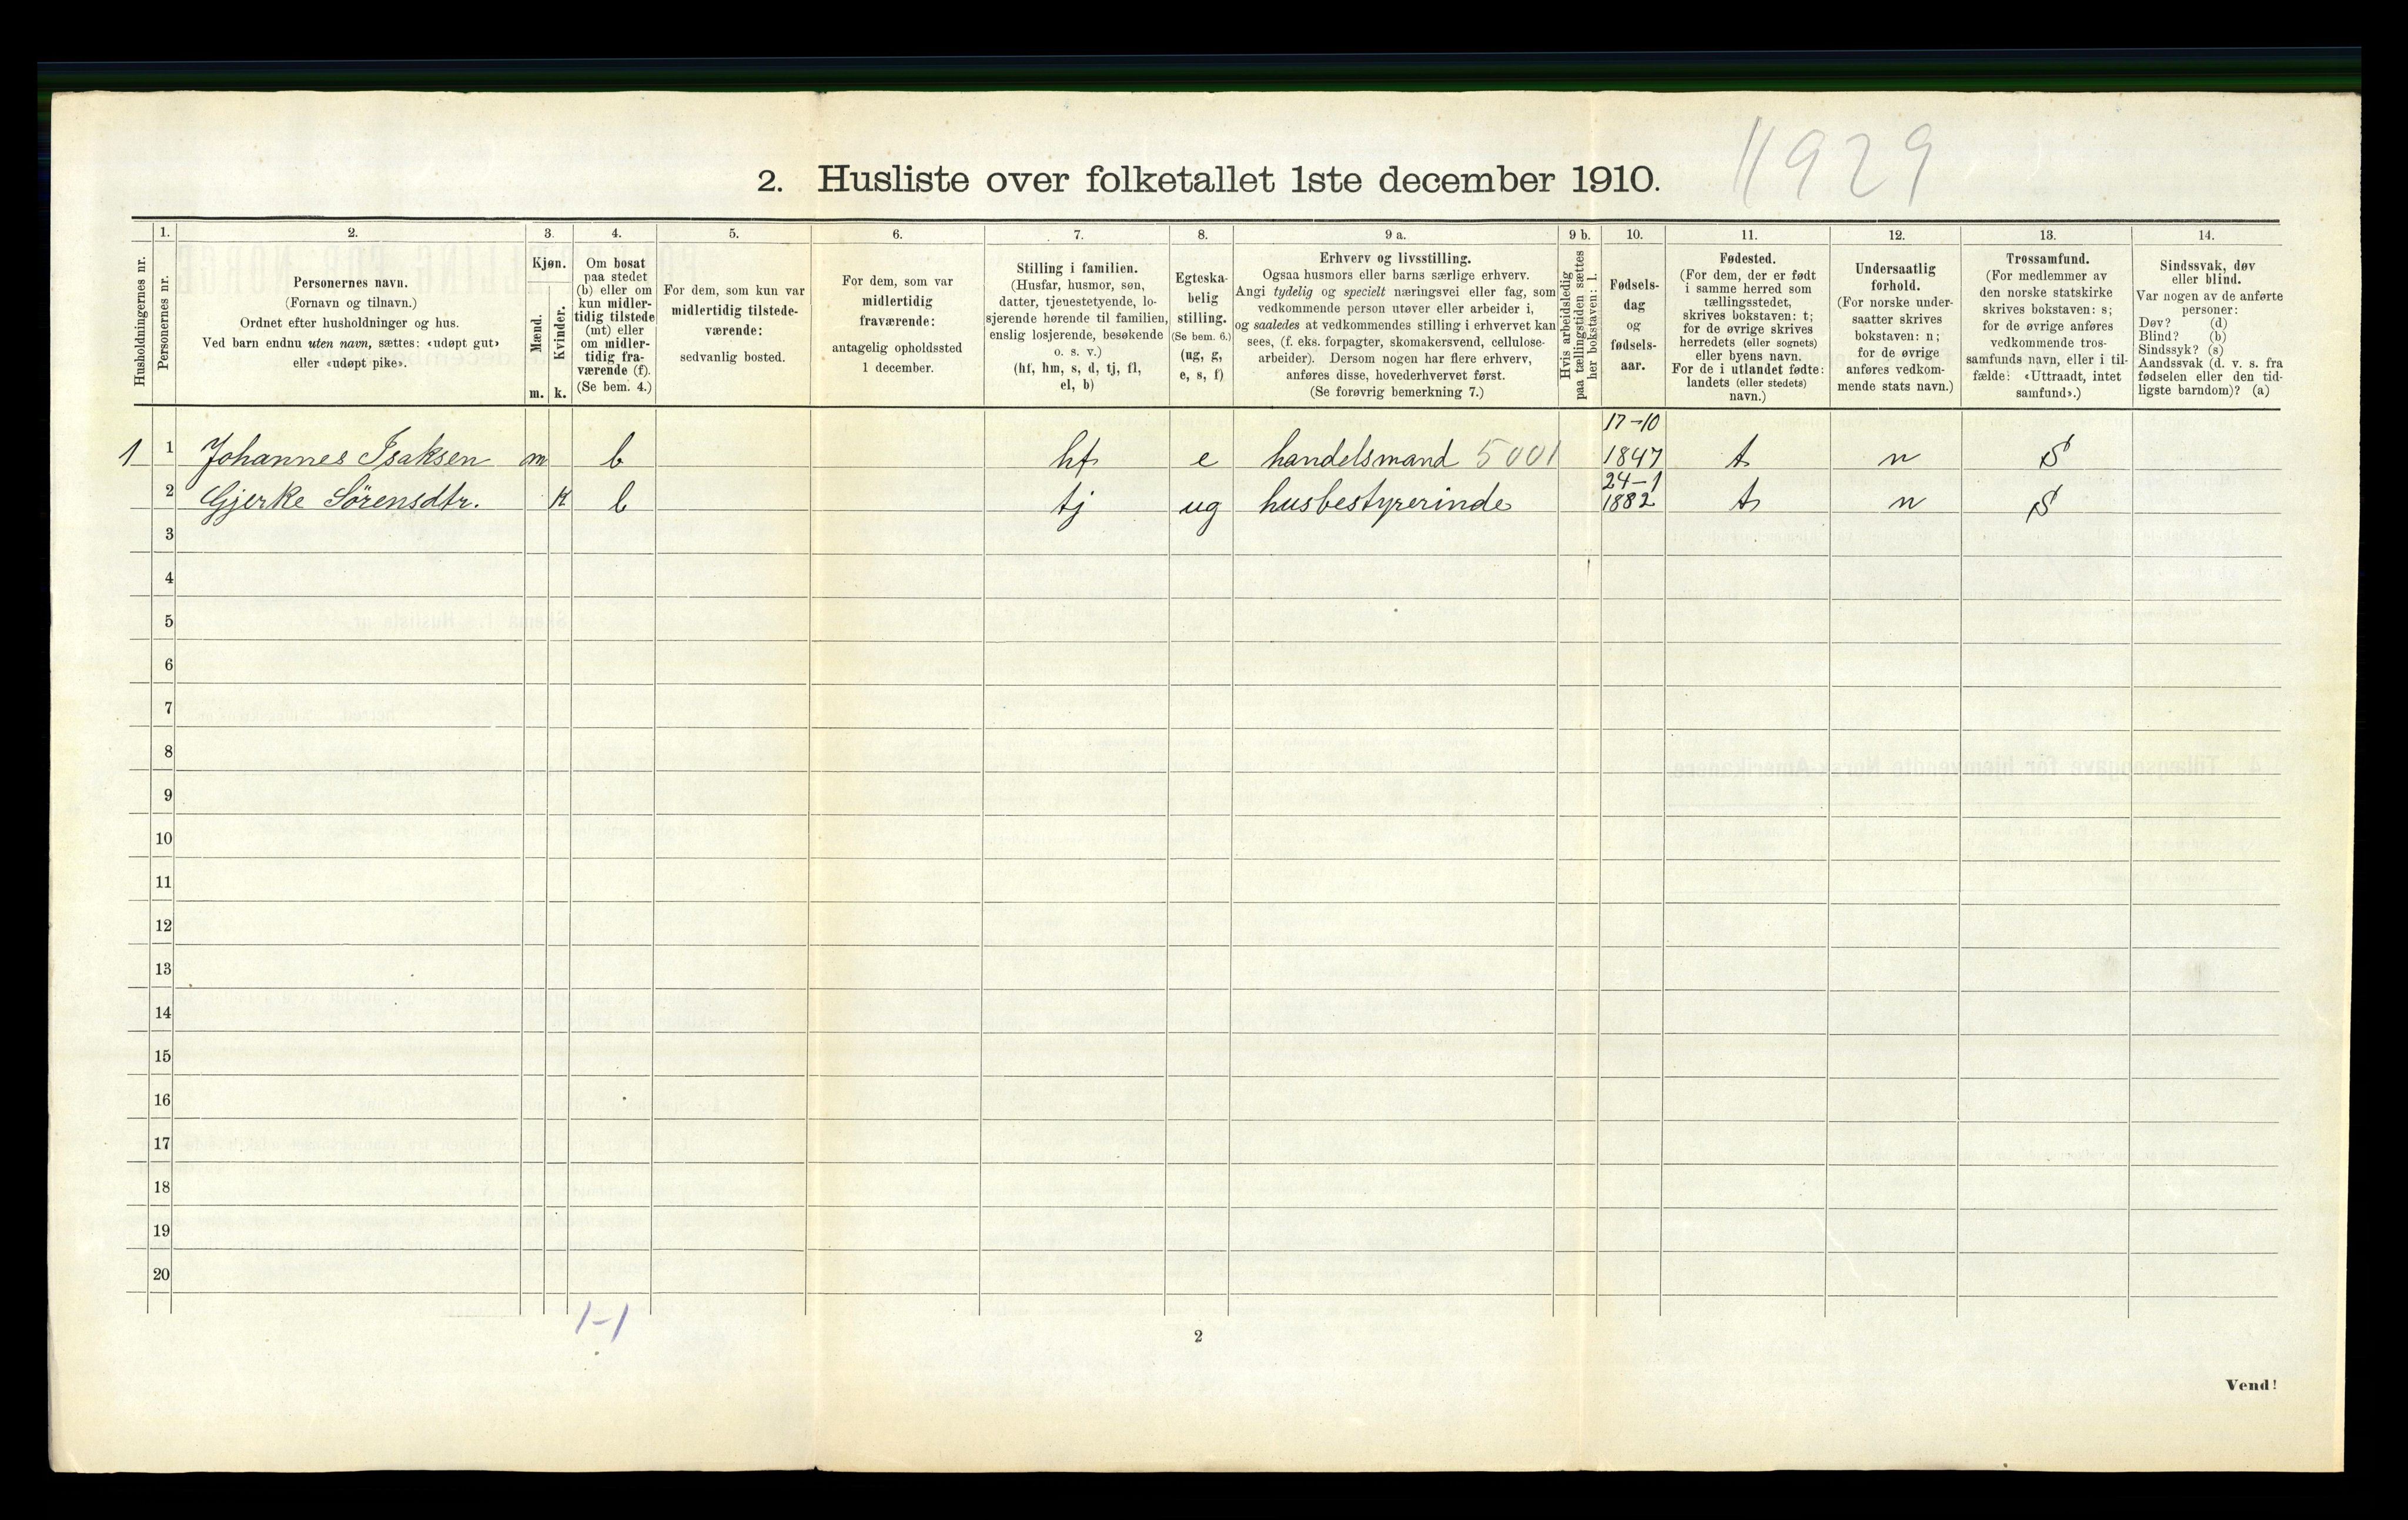 2. Husliste over folketallet 1ste december 1910. 1929
Husholdningernes nr.
1. Personernes nr.
2. Personernes navn.
(Fornavn og tilnavn.)
Ordnet efter husholdninger og hus.
Ved barn endnu uten navn, sættes: «udøpt gut»
eller «udøpt pike».
3. Kjøn.
Mænd. Kvinder.
m. k.
4. Om bosat
paa stedet
(b) eller om
kun midler-
tidig tilstede
(mt) eller
om midler-
tidig fra-
værende (f).
(Se bem. 4.)
5. For dem, som kun var
midlertidig tilstede-
værende:
sedvanlig bosted.
6. For dem, som var
midlertidig
fraværende:
antagelig opholdssted
1 december.
7. Stilling i familien.
(Husfar, husmor, søn,
datter, tjenestetyende, lo-
sjerende hørende til familien,
enslig losjerende, besøkende
o. s. v.)
(hf, hm, s, d, tj, fl,
el, b)
8. Egteska-
belig
stilling.
(Se bem. 6.)
(ug, g,
e, s, f)
9 a. Erhverv og livsstilling.
Ogsaa husmors eller barns særlige erhverv.
Angi tydelig og specielt næringsvei eller fag, som
vedkommende person utøver eller arbeider i,
og saaledes at vedkommendes stilling i erhvervet kan
sees, (f. eks. forpagter, skomakersvend, cellulose-
arbeider). Dersom nogen har flere erhverv,
anføres disse, hovederhvervet først.
(Se forøvrig bemerkning 7.)
9 b. Hvis arbeidsledig
paa tællingstiden sættes
her bokstaven: l.
10. Fødsels-
dag
og
fødsels-
aar.
11. Fødested.
(For dem, der er født
i samme herred som
tællingsstedet,
skrives bokstaven: t;
for de øvrige skrives
herredets (eller sognets)
eller byens navn.
For de i utlandet fødte:
landets (eller stedets)
navn.)
12. Undersaatlig
forhold.
(For norske under-
saatter skrives
bokstaven: n;
for de øvrige
anføres vedkom-
mende stats navn.)
13. Trossamfund.
(For medlemmer av
den norske statskirke
skrives bokstaven: s;
for de øvrige anføres
vedkommende tros-
samfunds navn, eller i til-
fælde: «Uttraadt, intet
samfund».)
14. Sindssvak, døv
eller blind.
Var nogen av de anførte
personer:
Døv? (d)
Blind? (b)
Sindssyk? (s)
Aandssvak (d. v. s. fra
fødselen eller den tid-
ligste barndom)? (a)
17-10
1 1 Johannes Isaksen m b hf e handelsmand 5001 1847 t n S
24-1
2 Gjerke Sörensdtr. k b tj ug husbestyrerinde 1882 t n S
3
4
5
6
7
8
9
10
11
12
13
14
15
16
17
18
19
20
1-1
2
Vend!